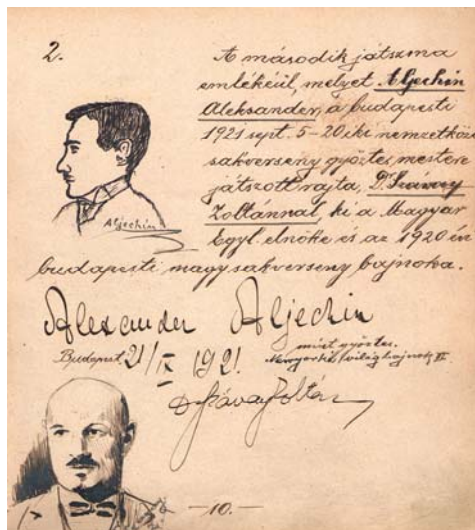 2.
A második játszma
emlékéül, melyet Aljechin
Aleksander, a budapesti
1921 sept. 5-20 iki nemzetközi
sakverseny győztes mestere
játszott rajta, Dr Szávay
Zoltánnal, ki a Magyar
Egyl. elnöke és az 1920 évi
budapesti nagy sakverseny bajnoka.
Aljechin
Alexander Aljechin
Budapest 21/IX 1921.
mint győztes.
Dr Szávay Zoltán
—10.—